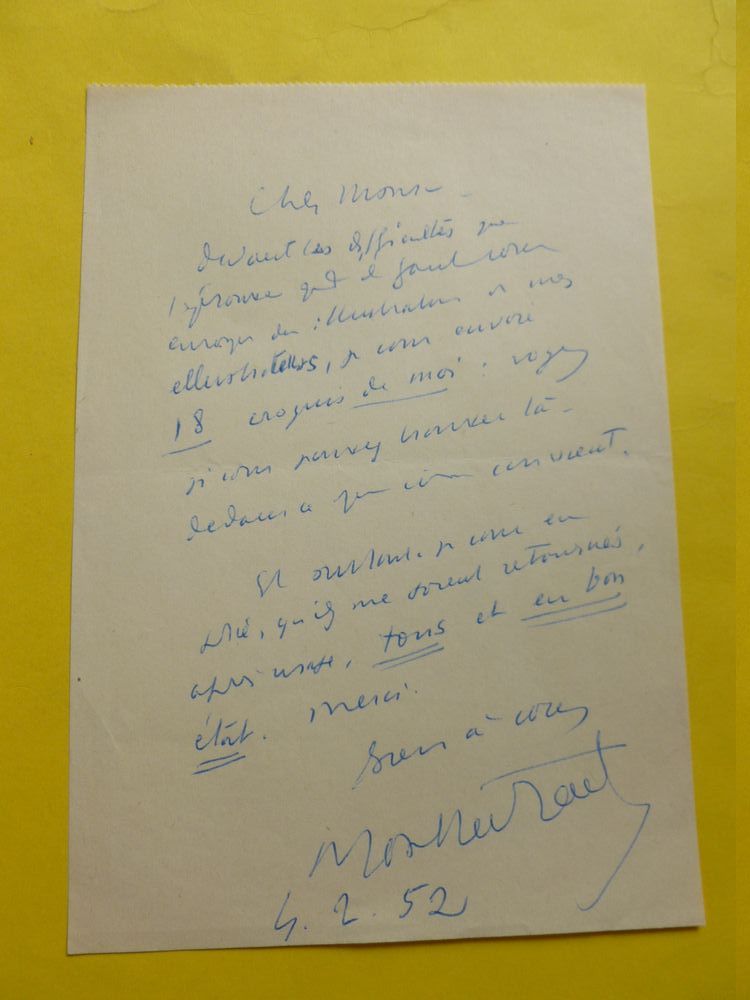 Cher Mons
devant les difficultés que
j'éprouve qd il faut vous
envoyer des illustrations et mes
illustrations, je vous envoie
18 croquis de moi : voyez
si vous pouvez trouver là-
dedans ce qui vous convient.
Et surtout, je vous en
prie, qu'ils me soient retournés,
après usage, tous et en bon
état. Merci.
Bien à vous
Montherlant
5. 2. 52